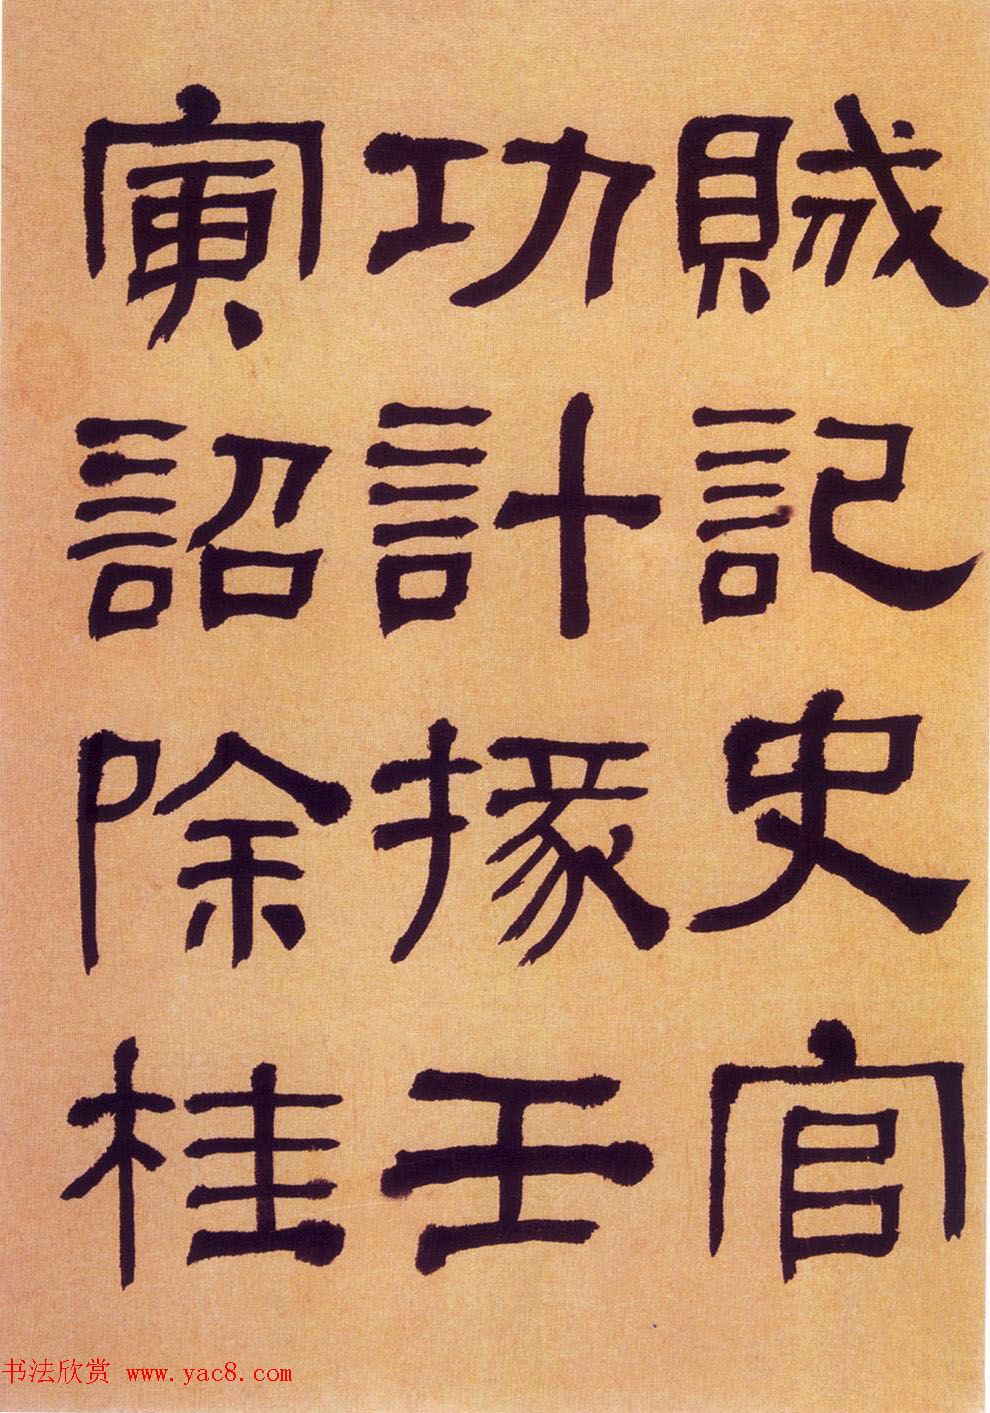 賊記史官
功計掾王
寅詔除桂
书法欣赏 www.yac8.com